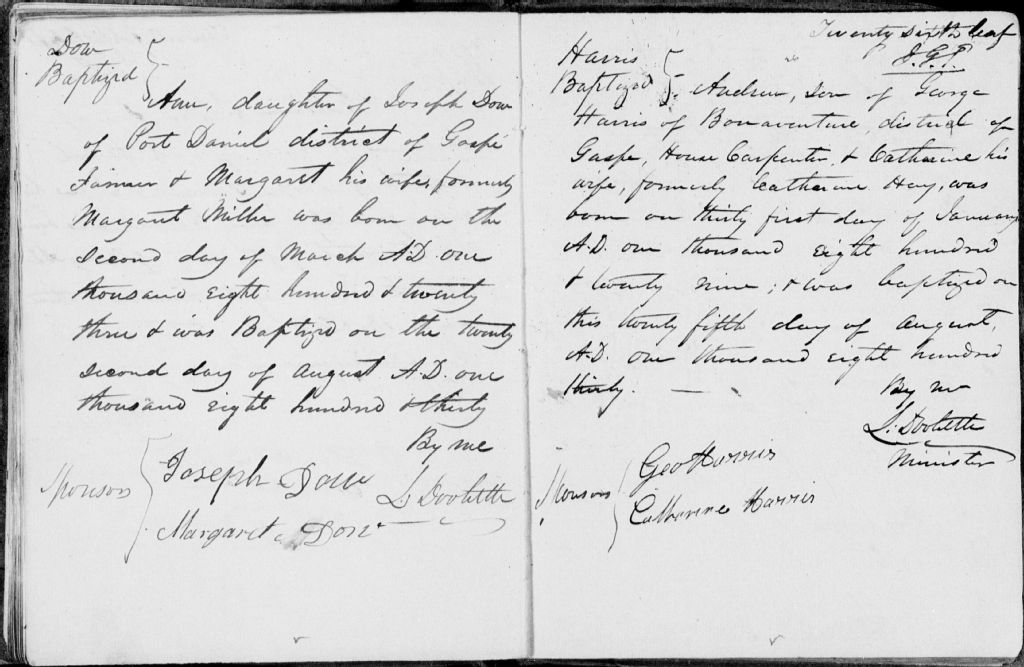 Dow
Baptized
Ann, daughter of Joseph Dow
of Port Daniel district of Gaspé
Farmer & Margaret his wife, formerly
Margaret Miller was born on the
second day of March A.D. one
thousand eight hundred & twenty
three & was Baptized on the twenty
second day of August A.D. one
thousand eight hundred & thirty
By me
Sponsors
Joseph Dow
L. Doolittle
Margaret Dow
Twenty sixth leaf
J.G.T.
Harris
Baptized
Andrew, son of George
Harris of Bonaventure, district of
Gaspe, House Carpenter, & Catharine his
wife, formerly Catharine Hay, was
born on thirty first day of January
A.D. one thousand eight hundred
& twenty nine; & was baptized on
this twenty fifth day of August,
A.D. one thousand eight hundred
thirty. —
By me
L. Doolittle
Minister
Sponsors
Geo Harris
Catherine Harris